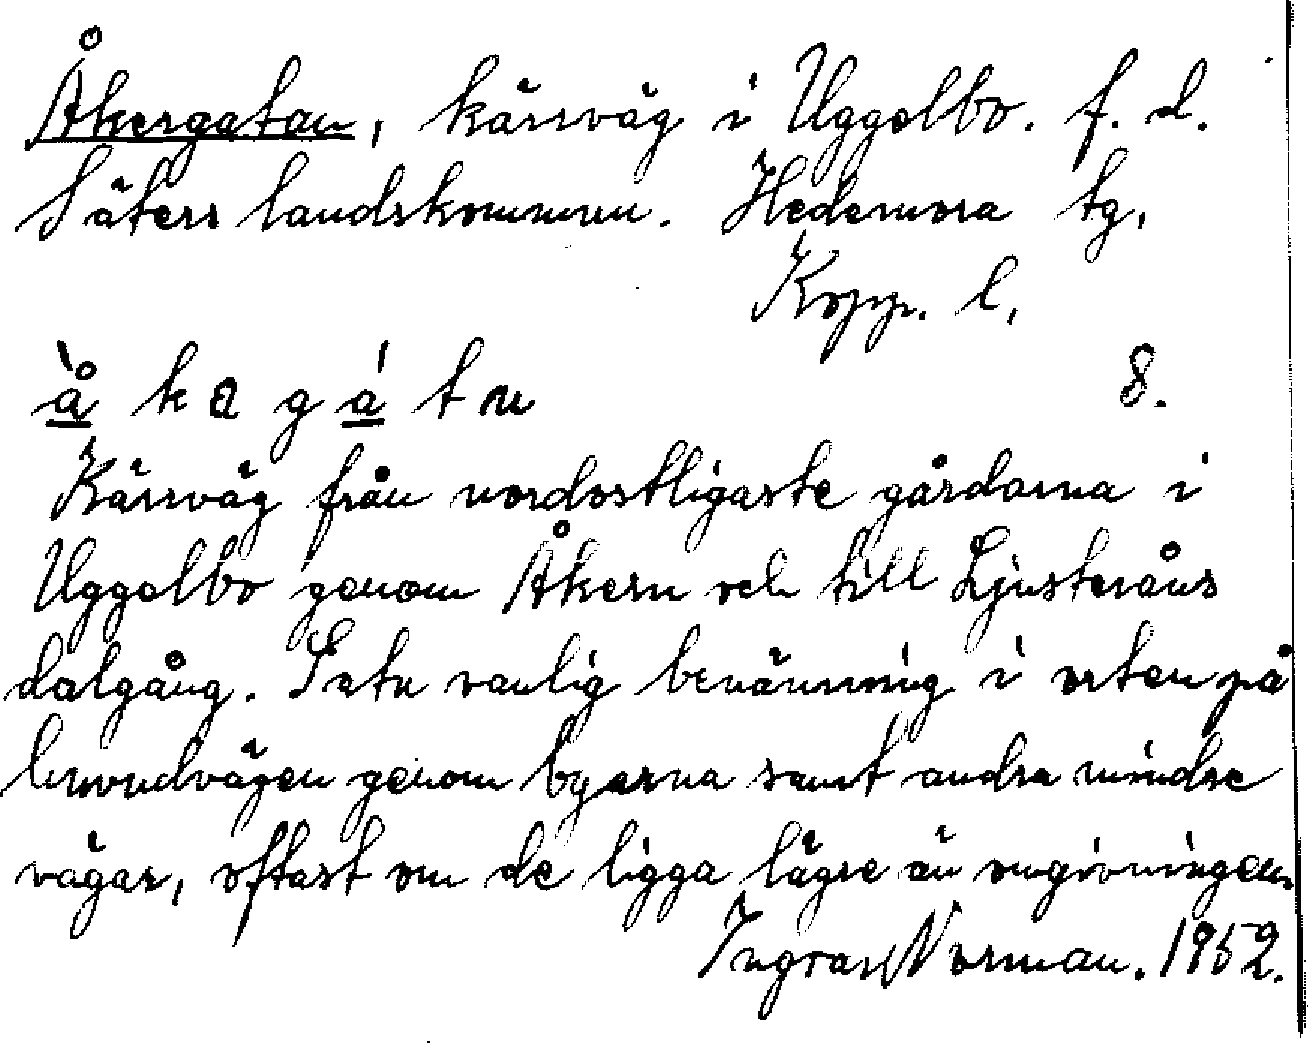 Åkergatan, kärrväg i Uggelbo. f. d.
Säters landskommun. Hedemora tg.
Kopp. l.
å̀ k a g á t n 8.
Kärrväg från nordostligaste gårdarna i
Uggelbo genom Åkern och till Ljusteråns
dalgång. Gatu vanlig benämning i orten på
huvudvägen genom byarna samt andra mindre
vägar, oftast om de ligga lägre än omgivningen.
Ingvar Norman. 1952.